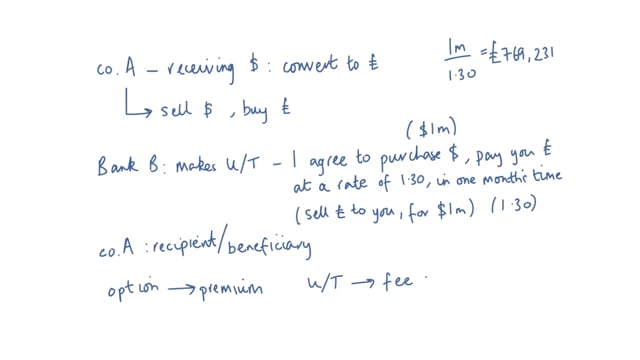 co. A - receiving $ : convert to £
1m
1.30
= £769,231
↳ sell $ , buy £
($1m)
Bank B : makes U/T - I agree to purchase $ , pay you £
at a rate of 1.30, in one month's time
(sell £ to you, for $1m) (1.30)
co. A : recipient/beneficiary
option → premium U/T → fee .